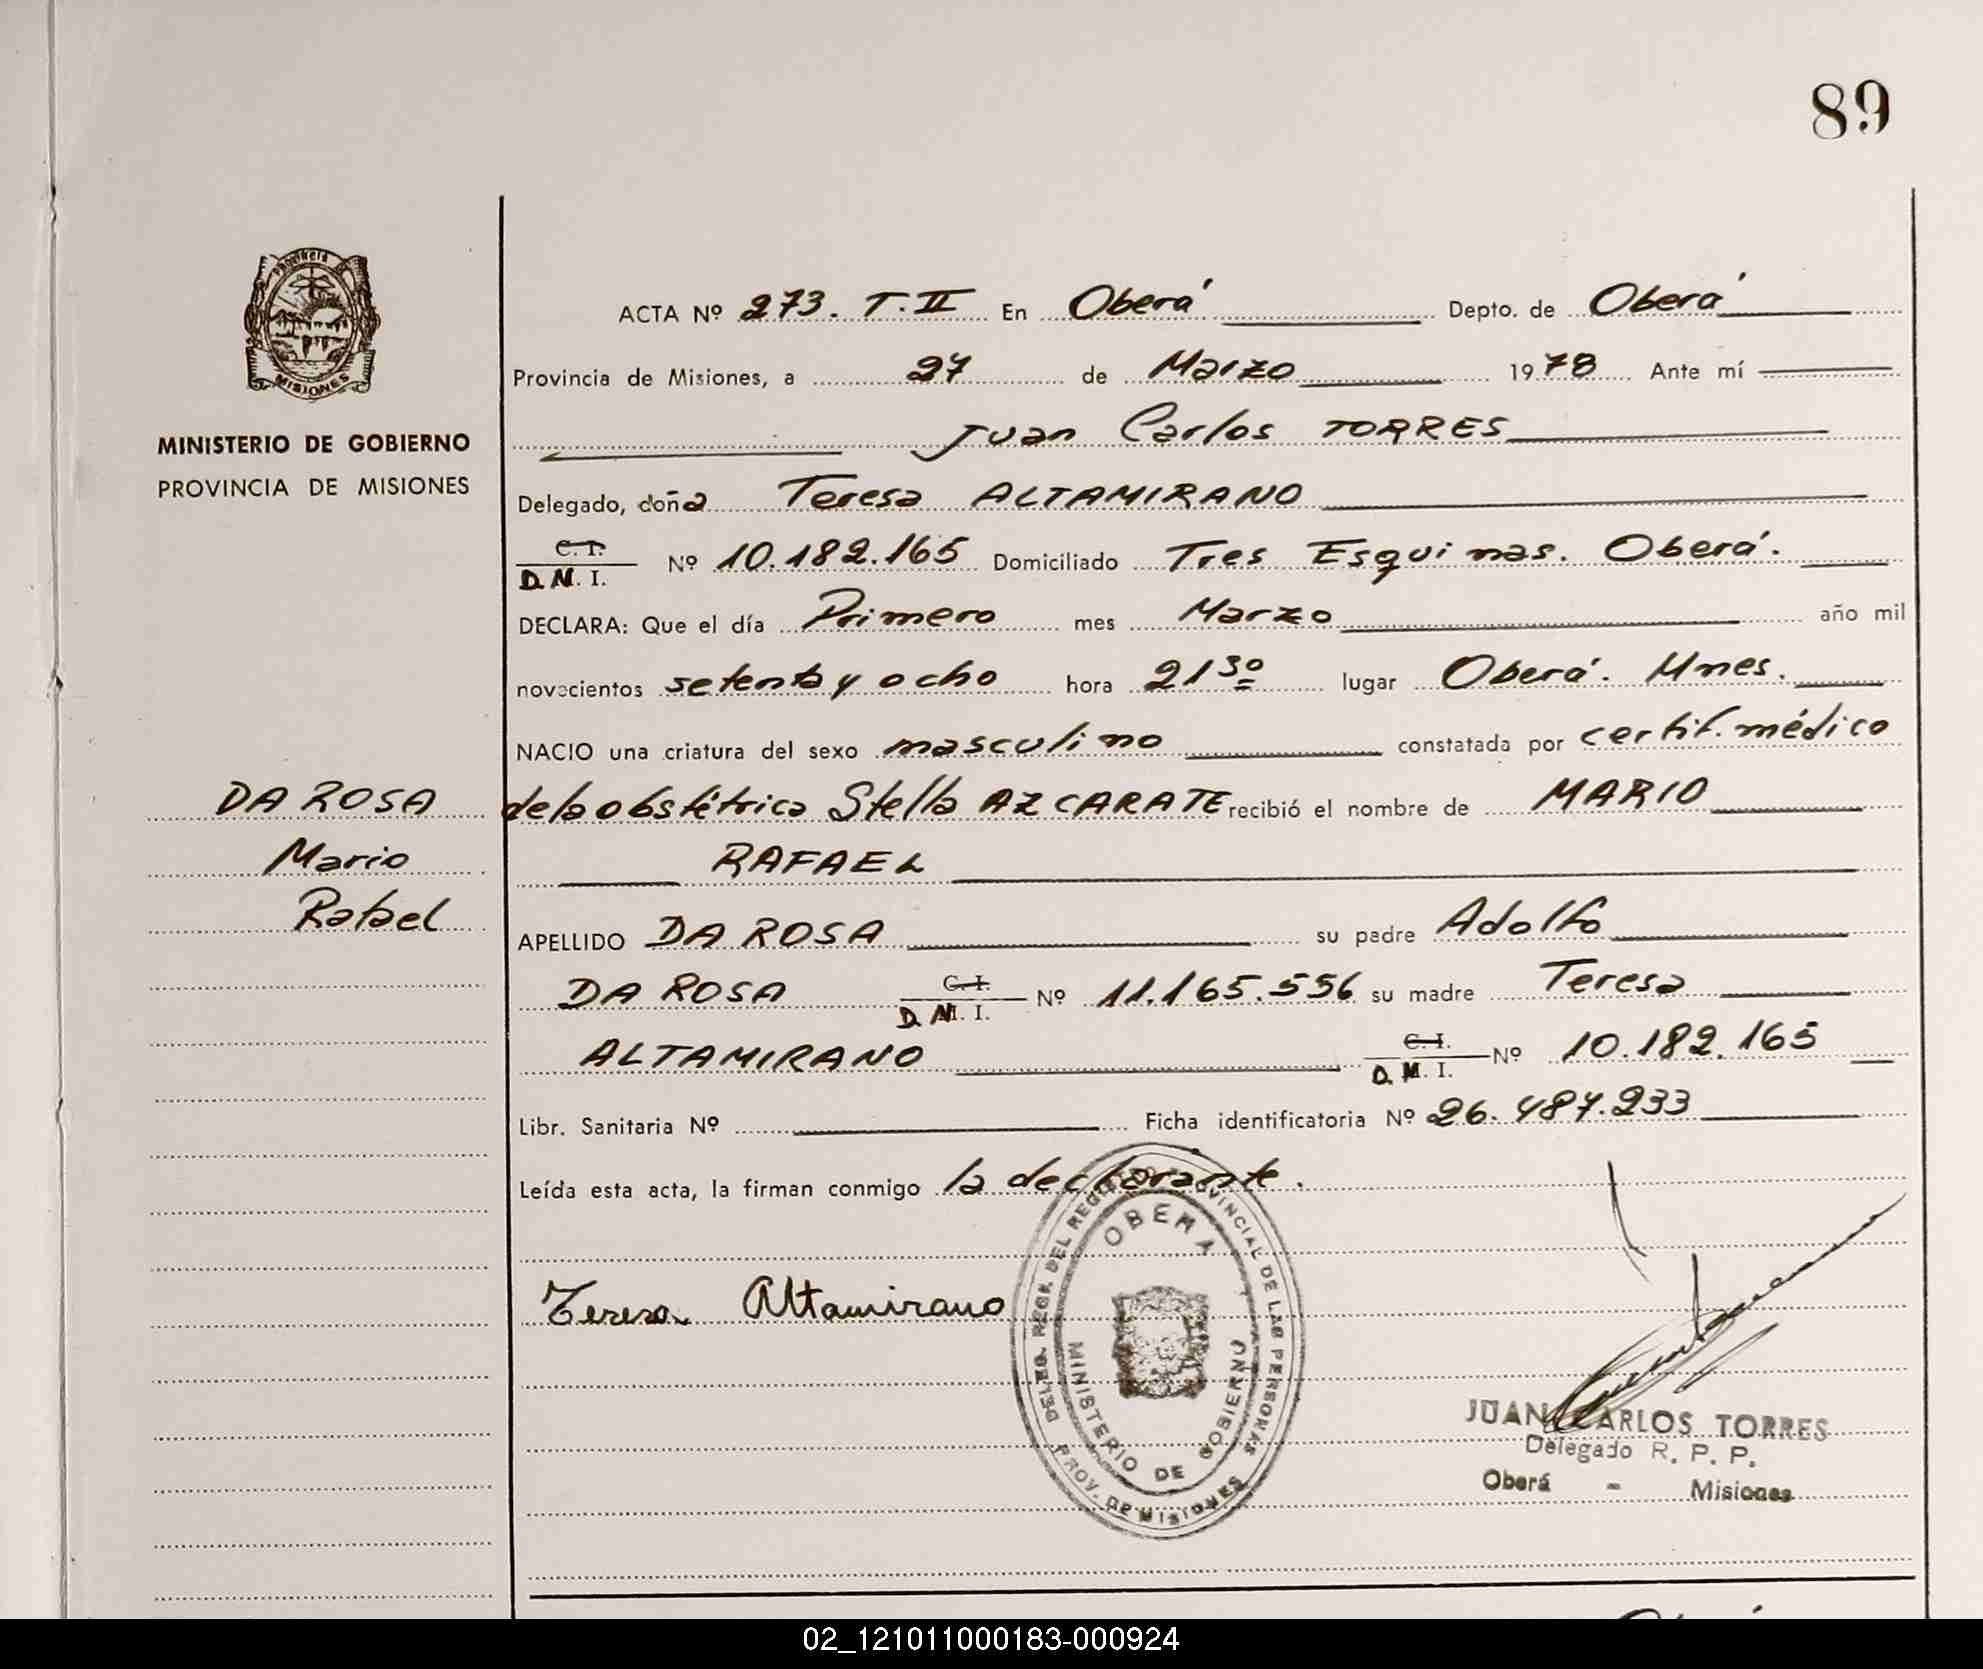 89
PROVINCIA DE
MISIONES
MINISTERIO DE GOBIERNO
PROVINCIA DE MISIONES
ACTA Nº 273. T. II En Oberá Depto. de Oberá
Provincia de Misiones, a 27 de Marzo 1978 Ante mí
Juan Carlos TORRES
Delegado, doña Teresa ALTAMIRANO
C. I.
D. N. I. Nº 10.182.165 Domiciliado Tres Esquinas. Oberá.
DECLARA: Que el día Primero mes Marzo año mil
novecientos setenta y ocho hora 21 30 lugar Oberá. Mnes.
NACIO una criatura del sexo masculino constatada por certif. médico
DA ROSA de la obstétrica Stella AZCARATE recibió el nombre de MARIO
Mario RAFAEL
Rafael
APELLIDO DA ROSA su padre Adolfo
DA ROSA C. I. D. N. I. Nº 11.165.556 su madre Teresa
ALTAMIRANO C. I. D. N. I. Nº 10.182.165
Libr. Sanitaria Nº Ficha identificatoria Nº 26.487.233
Leída esta acta, la firman conmigo la declarante.
Teresa Altamirano
DELEG. REGK. DEL REGISTRO PROVINCIAL DE LAS PERSONAS
OBERA
MINISTERIO DE GOBIERNO
PROV. DE MISIONES
JUAN CARLOS TORRES
Delegado R. P. P.
Oberá - Misiones
02_121011000183-000924